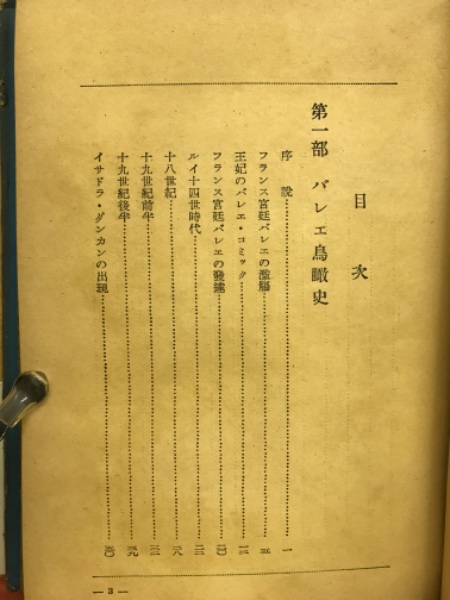 目次
第一部 バレエ鳥瞰史
序説……一
フランス宮廷バレエの濫觴……五
王妃のバレエ・コミック……一三
フランス宮廷バレエの發達……二〇
ルイ十四世時代……二三
十八世紀……二八
十九世紀前半……三三
十九世紀後半……三九
イサドラ・ダンカンの出現……五〇
— 3 —